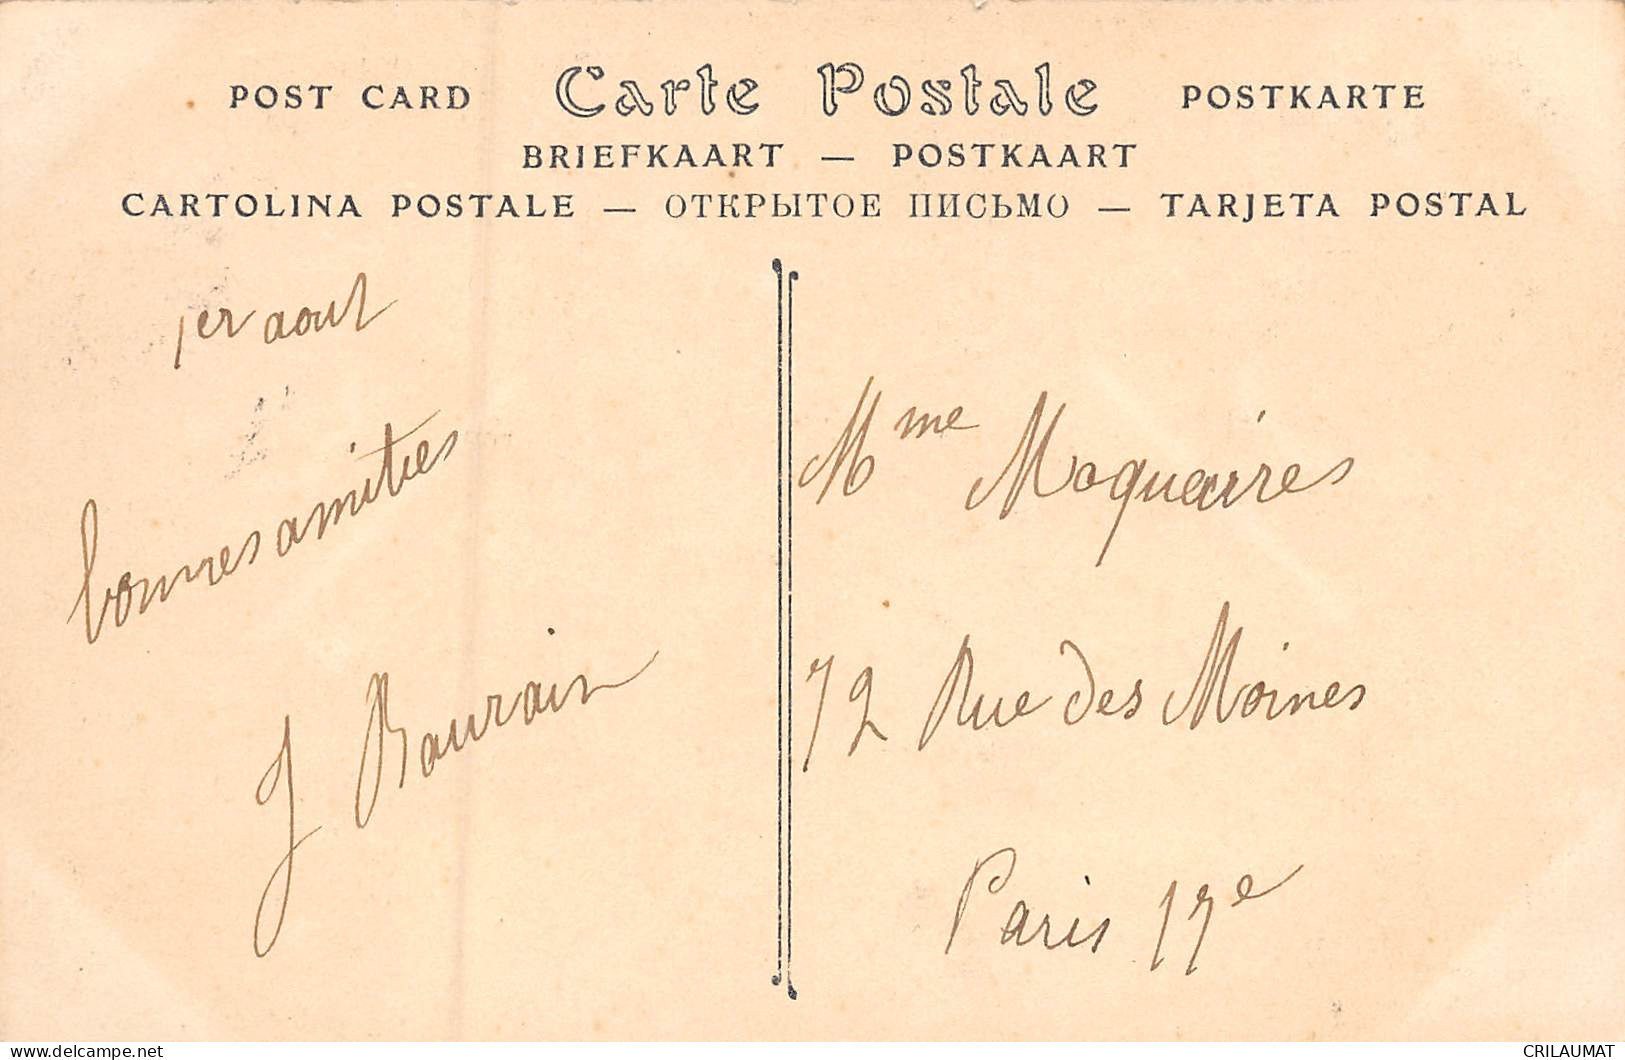 POST CARD Carte Postale POSTKARTE
BRIEFKAART — POSTKAART
CARTOLINA POSTALE — ОТКРЫТОЕ ПИСЬМО — TARJETA POSTAL
1er aout
bonnes amities
J Baurain
Mme Moquaires
72 Rue des Moines
Paris 17e
CRILAUMAT